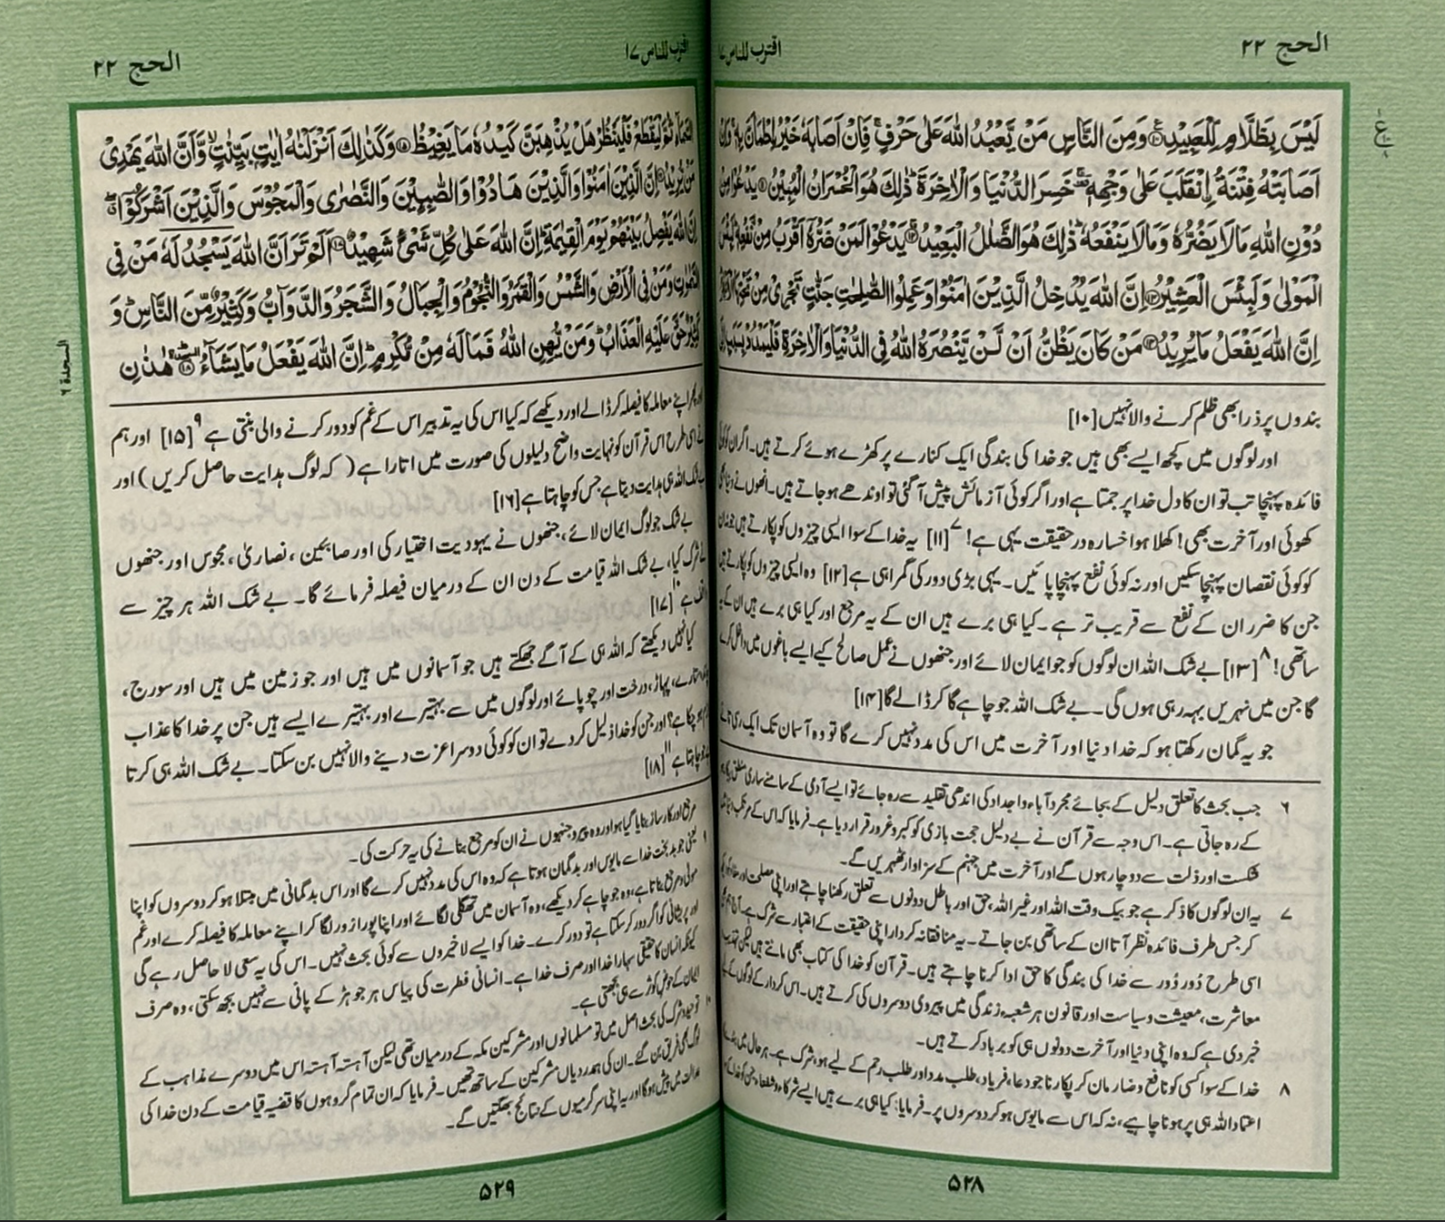 الحج ۲۲
اقترب للناس ۱۷
ع
لَيْسَ بِظَلَّامٍ لِّلْعَبِيْدِ وَمِنَ النَّاسِ مَنْ يَّعْبُدُ اللّٰهَ عَلٰى حَرْفٍ فَاِنْ اَصَابَهٗ خَيْرُ اطْمَاَنَّ بِهٖ وَاِنْ
اَصَابَتْهُ فِتْنَةُ اِنْقَلَبَ عَلٰى وَجْهِهٖ خَسِرَ الدُّنْيَا وَالْاٰخِرَةَ ذٰلِكَ هُوَ الْخُسْرَانُ الْمُبِيْنُ يَدْعُوْا مِنْ
دُوْنِ اللّٰهِ مَا لَا يَضُرُّهٗ وَمَا لَا يَنْفَعُهٗ ذٰلِكَ هُوَ الضَّلٰلُ الْبَعِيْدُ يَدْعُوْا لَمَنْ ضَرُّهٗ اَقْرَبُ مِنْ نَّفْعِهٖ لَبِئْسَ
الْمَوْلٰى وَلَبِئْسَ الْعَشِيْرُ اِنَّ اللّٰهَ يُدْخِلُ الَّذِيْنَ اٰمَنُوْا وَعَمِلُوا الصّٰلِحٰتِ جَنّٰتٍ تَجْرِىْ مِنْ تَحْتِهَا الْاَنْهٰرُ
اِنَّ اللّٰهَ يَفْعَلُ مَا يُرِيْدُ مَنْ كَانَ يَظُنُّ اَنْ لَّنْ يَّنْصُرَهُ اللّٰهُ فِى الدُّنْيَا وَالْاٰخِرَةِ فَلْيَمْدُدْ بِسَبَبٍ اِلَى
بندوں پر ذرا بھی ظلم کرنے والا نہیں [۱۰]
اور لوگوں میں کچھ ایسے بھی ہیں جو خدا کی بندگی ایک کنارے پر کھڑے ہوئے کرتے ہیں۔ اگر ان کو کوئی
فائدہ پہنچا تب تو ان کا دل خدا پر جمتا ہے اور اگر کوئی آزمائش پیش آ گئی تو اوندھے ہو جاتے ہیں۔ انھوں نے دنیا بھی
کھوئی اور آخرت بھی! کھلا ہوا خسارہ در حقیقت یہی ہے!۷ [۱۱] یہ خدا کے سوا ایسی چیزوں کو پکارتے ہیں جو نہ ان
کو کوئی نقصان پہنچا سکیں اور نہ کوئی نفع پہنچا پائیں۔ یہی بڑی دور کی گمراہی ہے [۱۲] وہ ایسی چیزوں کو پکارتے ہیں
جن کا ضرر ان کے نفع سے قریب تر ہے۔ کیا ہی برے ہیں ان کے یہ مرجع اور کیا ہی برے ہیں ان کے یہ
ساتھی!۸ [۱۳] بے شک اللہ ان لوگوں کو جو ایمان لائے اور جنھوں نے عمل صالح کیے ایسے باغوں میں داخل کرے
گا جن میں نہریں بہہ رہی ہوں گی۔ بے شک اللہ جو چاہے گا کر ڈالے گا [۱۴]
جو یہ گمان رکھتا ہو کہ خدا دنیا اور آخرت میں اس کی مدد نہیں کرے گا تو وہ آسمان تک ایک رسی تانے
۶ جب بحث کا تعلق دلیل کے بجائے مجرد آباء و اجداد کی اندھی تقلید سے رہ جائے تو ایسے آدمی کے سامنے ساری منطق بیکار ہو
کے رہ جاتی ہے۔ اس وجہ سے قرآن نے بے دلیل حجت بازی کو کبر و غرور قرار دیا ہے۔ فرمایا کہ اس کے مرتکب دنیا میں
شکست اور ذلت سے دوچار ہوں گے اور آخرت میں جہنم کے سزاوار ٹھہریں گے۔
۷ یہ ان لوگوں کا ذکر ہے جو بیک وقت اللہ اور غیر اللہ، حق اور باطل دونوں سے تعلق رکھنا چاہتے اور اپنی مصلحت اور
کر جس طرف فائدہ نظر آتا ان کے ساتھی بن جاتے۔ یہ منافقانہ کردار اپنی حقیقت کے اعتبار سے شرک ہے۔ آج بھی
اسی طرح دُور دُور سے خدا کی بندگی کا حق ادا کرنا چاہتے ہیں۔ قرآن کو خدا کی کتاب بھی مانتے ہیں لیکن تہذیب
معاشرت، معیشت و سیاست اور قانون ہر شعبہ زندگی میں پیروی دوسروں کی کرتے ہیں۔ اس کردار کے لوگوں کے لیے
خبر دی ہے کہ وہ اپنی دنیا اور آخرت دونوں ہی کو برباد کرتے ہیں۔
۸ خدا کے سوا کسی کو نافع و ضار مان کر پکارنا جو دعا، فریاد، طلب مدد اور طلب رحم کے لیے ہو، شرک ہے۔ ہر حال میں بندے کا
اعتماد اللہ ہی پر ہونا چاہیے، نہ کہ اس سے مایوس ہو کر دوسروں پر۔ فرمایا: کیا ہی برے ہیں ایسے شرکاء و شفعاء جن کو خدا کے
۵۲۸
اقترب للناس ۱۷
الحج ۲۲
السجدة ۶
السَّمَآءِ ثُمَّ لْيَقْطَعْ فَلْيَنْظُرْ هَلْ يُذْهِبَنَّ كَيْدُهٗ مَا يَغِيْظُ وَكَذٰلِكَ اَنْزَلْنٰهُ اٰيٰتٍ بَيِّنٰتٍ وَّاَنَّ اللّٰهَ يَهْدِىْ
مَنْ يُّرِيْدُ اِنَّ الَّذِيْنَ اٰمَنُوْا وَالَّذِيْنَ هَادُوْا وَالصّٰبِئِيْنَ وَالنَّصٰرٰى وَالْمَجُوْسَ وَالَّذِيْنَ اَشْرَكُوْا
اِنَّ اللّٰهَ يَفْصِلُ بَيْنَهُمْ يَوْمَ الْقِيٰمَةِ اِنَّ اللّٰهَ عَلٰى كُلِّ شَىْءٍ شَهِيْدٌ اَلَمْ تَرَ اَنَّ اللّٰهَ يَسْجُدُ لَهٗ مَنْ فِى
السَّمٰوٰتِ وَمَنْ فِى الْاَرْضِ وَالشَّمْسُ وَالْقَمَرُ وَالنُّجُوْمُ وَالْجِبَالُ وَالشَّجَرُ وَالدَّوَآبُّ وَكَثِيْرٌ مِّنَ النَّاسِ وَ
كَثِيْرٌ حَقَّ عَلَيْهِ الْعَذَابُ وَمَنْ يُّهِنِ اللّٰهُ فَمَا لَهٗ مِنْ مُّكْرِمٍ اِنَّ اللّٰهَ يَفْعَلُ مَا يَشَآءُ هٰذٰنِ
اور پھر اپنے معاملہ کا فیصلہ کر ڈالے اور دیکھے کہ کیا اس کی یہ تدبیر اس کے غم کو دور کرنے والی بنتی ہے۹ [۱۵] اور ہم
نے اسی طرح اس قرآن کو نہایت واضح دلیلوں کی صورت میں اتارا ہے (کہ لوگ ہدایت حاصل کریں) اور
بے شک اللہ ہی ہدایت دیتا ہے جس کو چاہتا ہے [۱۶]
بے شک جو لوگ ایمان لائے، جنھوں نے یہودیت اختیار کی اور صابئین، نصاریٰ، مجوس اور جنھوں
نے شرک کیا، بے شک اللہ قیامت کے دن ان کے درمیان فیصلہ فرمائے گا۔ بے شک اللہ ہر چیز سے
واقف ہے۱۰ [۱۷]
کیا نہیں دیکھتے کہ اللہ ہی کے آگے جھکتے ہیں جو آسمانوں میں ہیں اور جو زمین میں ہیں اور سورج،
چاند، ستارے، پہاڑ، درخت اور چوپائے اور لوگوں میں سے بہتیرے اور بہتیرے ایسے ہیں جن پر خدا کا عذاب
لازم ہو چکا ہے؟ اور جن کو خدا ذلیل کر دے تو ان کو کوئی دوسرا عزت دینے والا نہیں بن سکتا۔ بے شک اللہ ہی کرتا
ہے جو چاہتا ہے۱۱ [۱۸]
مرجع اور کارساز بنایا گیا ہو اور وہ پیرو جنہوں نے ان کو مرجع بنانے کی یہ حرکت کی۔
۹ یعنی جو بد بخت خدا سے مایوس اور بدگمان ہوتا ہے کہ وہ اس کی مدد نہیں کرے گا اور اس بدگمانی میں مبتلا ہو کر دوسروں کو اپنا
مولیٰ و مرجع بناتا ہے، وہ جو چاہے کر دیکھے، وہ آسمان میں تھگلی لگائے اور اپنا پورا زور لگا کر اپنے معاملہ کا فیصلہ کرے اور غم
اور پریشانی کو اگر دور کر سکتا ہے تو دور کرے۔ خدا کو ایسے لاخیروں سے کوئی بحث نہیں۔ اس کی یہ سعی لا حاصل رہے گی
کیونکہ انسان کا حقیقی سہارا خدا اور صرف خدا ہے۔ انسانی فطرت کی پیاس ہر جوہڑ کے پانی سے نہیں بجھ سکتی، وہ صرف
ایمان کے حوضِ کوثر سے ہی بجھتی ہے۔
۱۰ توحید و شرک کی بحث اصل میں تو مسلمانوں اور مشرکین مکہ کے درمیان تھی لیکن آہستہ آہستہ اس میں دوسرے مذاہب کے
لوگ بھی فریق بن گئے۔ ان کی ہمدردیاں مشرکین کے ساتھ تھیں۔ فرمایا کہ ان تمام گروہوں کا قضیہ قیامت کے دن خدا کی
عدالت میں پیش ہوگا اور یہ اپنی سرگرمیوں کے نتائج بھگتیں گے۔
۵۲۹